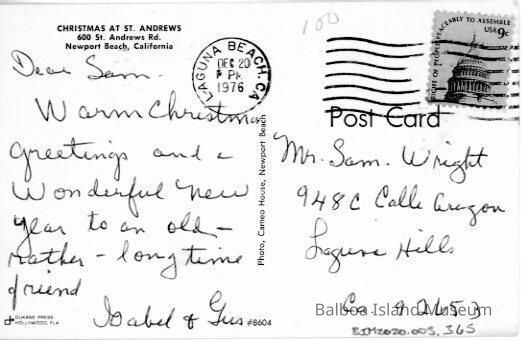 CHRISTMAS AT ST. ANDREWS
600 St. Andrews Rd.
Newport Beach, California
Dear Sam -
Warm Christmas
greetings and a
Wonderful New
Year to an old -
rather - long time
friend
Isabel & Gus
#8604
DUKANE PRESS
HOLLYWOOD, FLA
Photo, Cameo House, Newport Beach
100
LAGUNA BEACH, CA
DEC 20
PM
1976
RIGHT OF PEOPLE PEACEABLY TO ASSEMBLE
USA 9c
Post Card
Mr. Sam. Wright
948 C Calle Aragon
Laguna Hills
Ca 92653
Balboa Island Museum
BIM2020.005.365